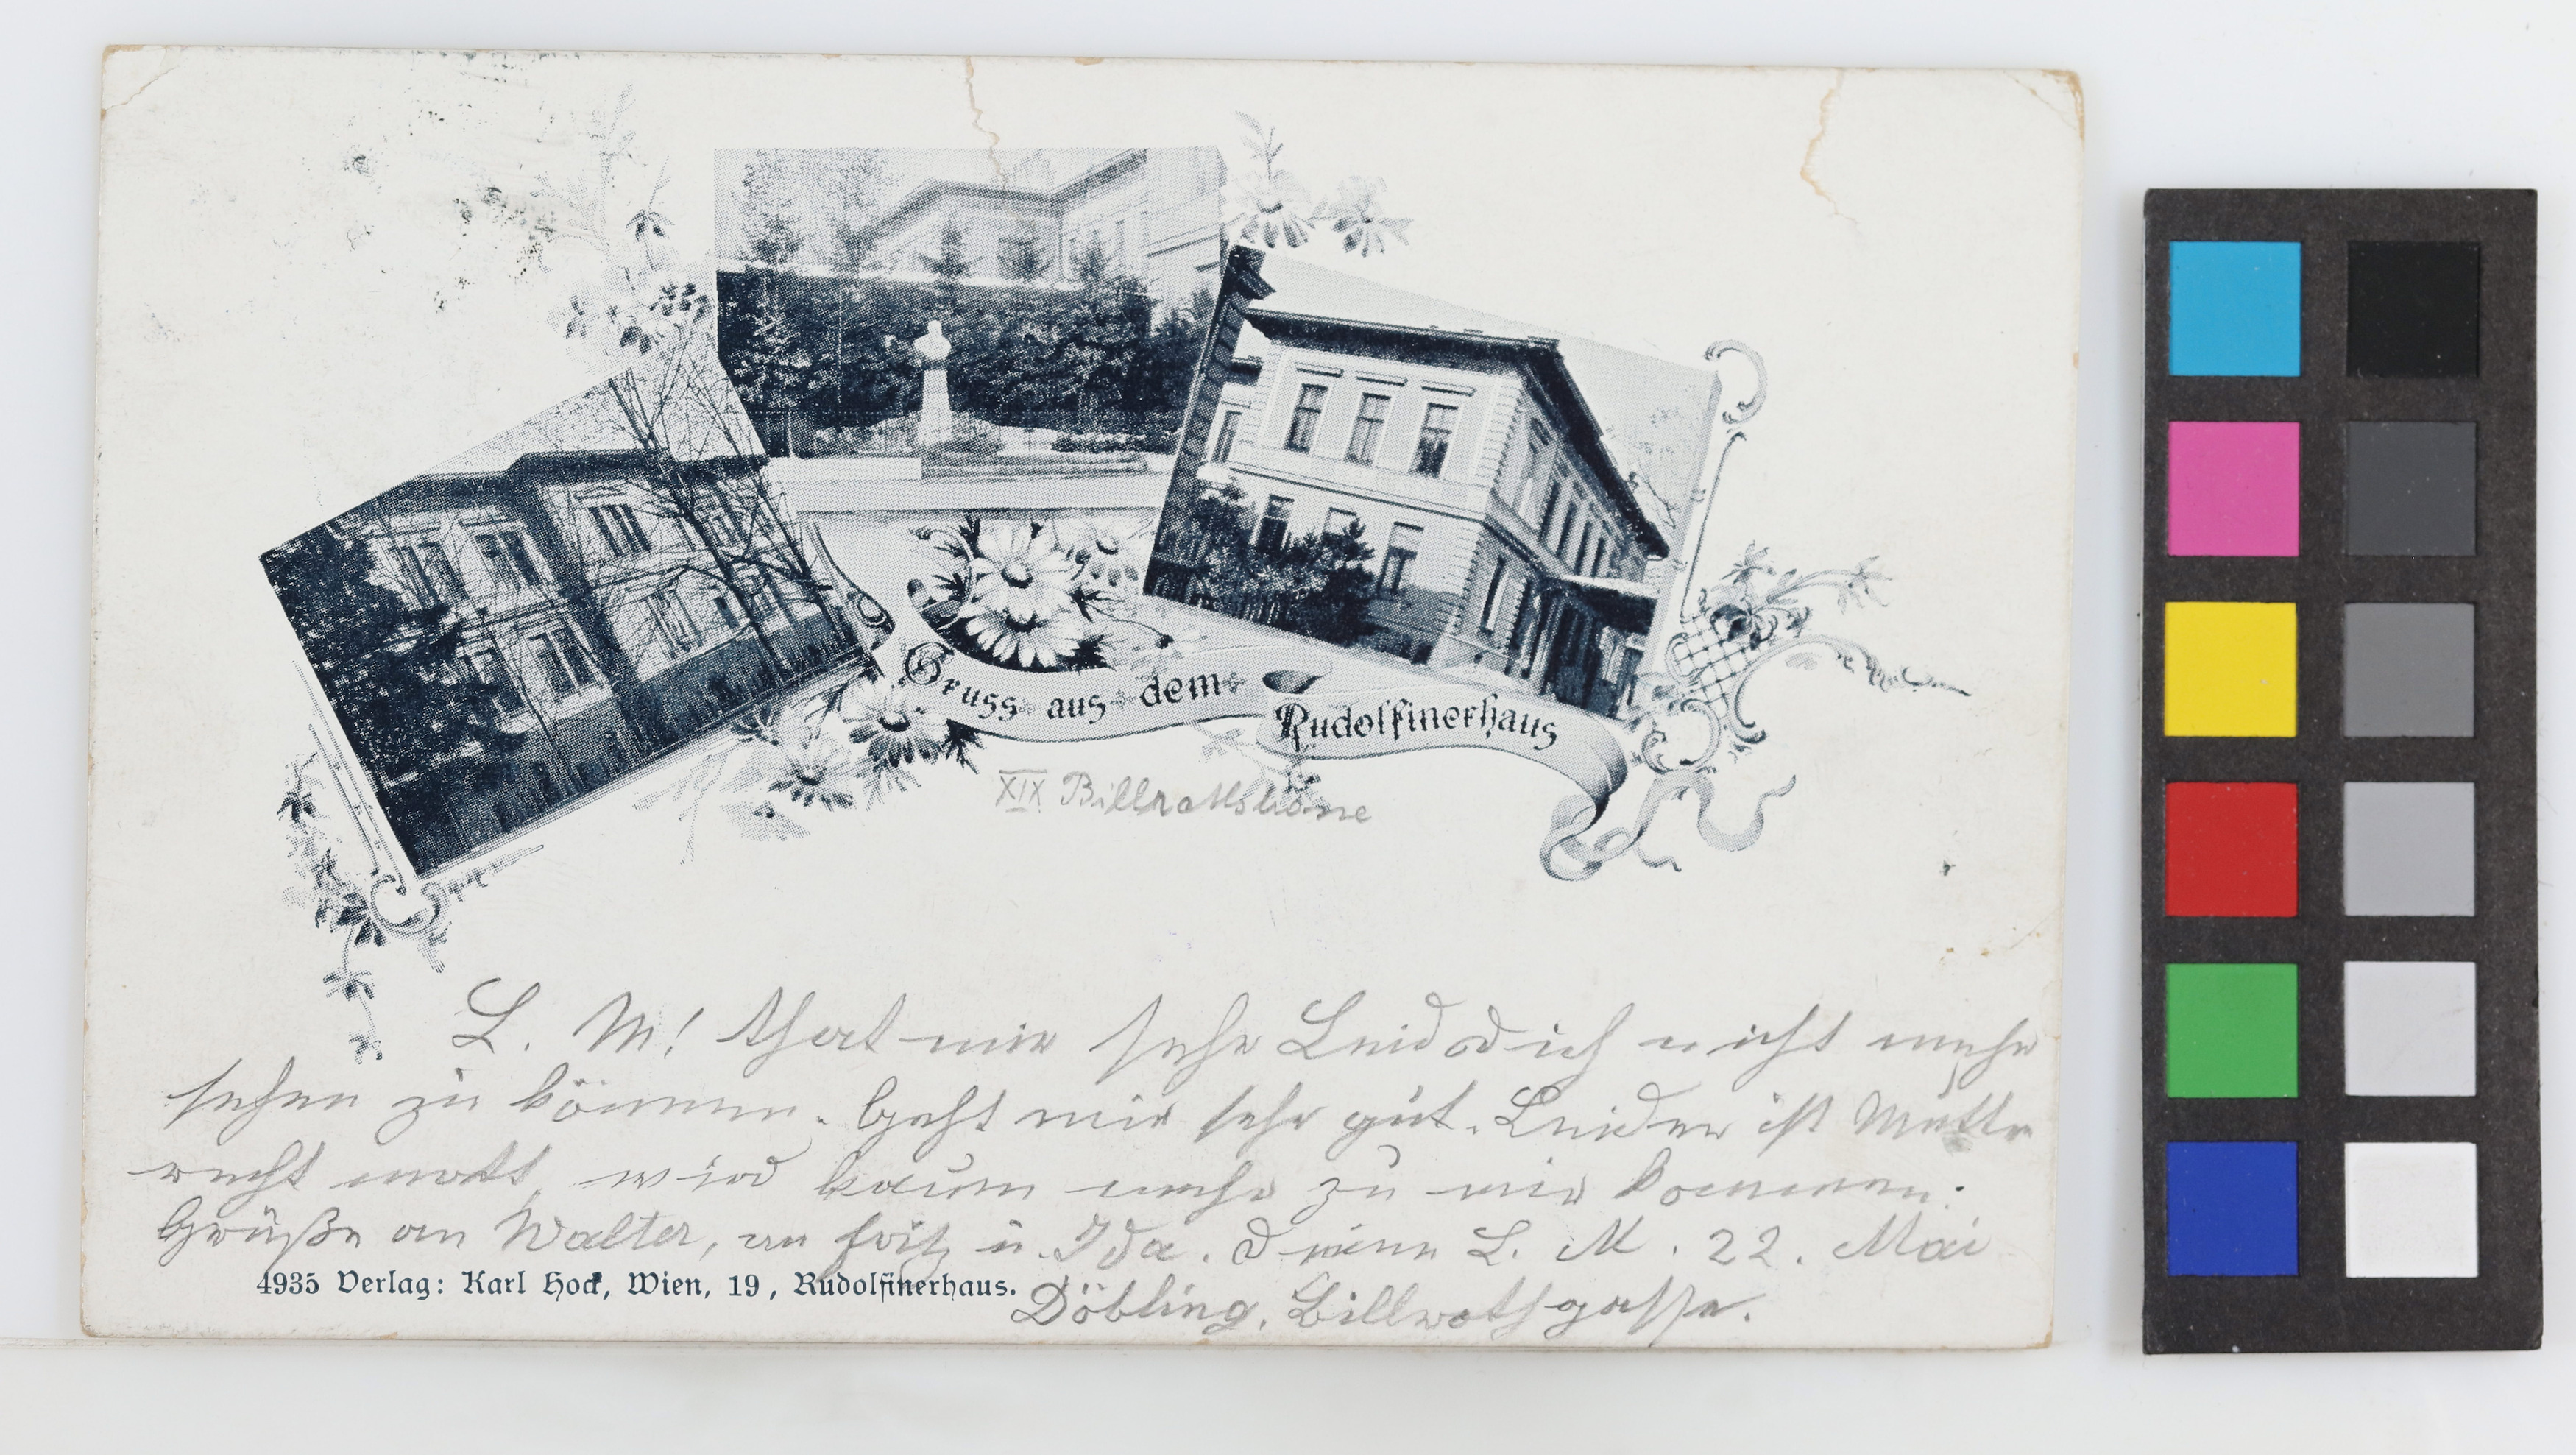 Gruss aus dem
Rudolfinerhaus
XIX
L. M! thut mir sehr Leid dich nicht mehr
sehen zu können. Geht mir sehr gut. Leider ist Mutter
recht matt, wird kaum mehr zu mir kommen.
Grüße an Walter, an Fritz u. Ida. Deine L. M. 22. Mai
4935 Verlag: Karl Hock, Wien, 19, Rudolfinerhaus.
Döbling, Billrothgasse.